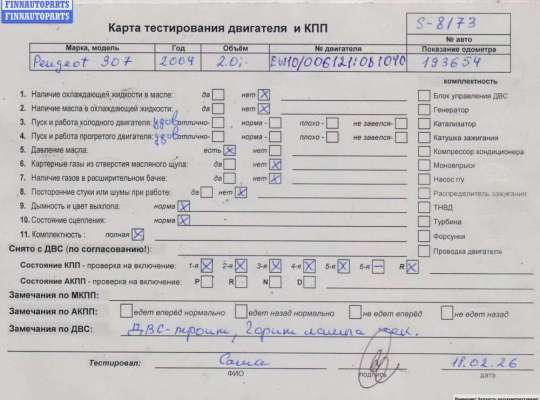 FINNAUTOPARTS
FINNAUTOPARTS
Карта тестирования двигателя и КПП
S-8173
№ авто
Марка, модель Год Объём № двигателя Показание одометра
Peugeot 307 2004 2.0i EW10/006121:081090 193654
комплектность
1. Наличие охлаждающей жидкости в масле: да нет
Блок управления ДВС
2. Наличие масла в охлаждающей жидкости: да нет
Генератор
3. Пуск и работа холодного двигателя: удов отлично- норма - плохо - не завелся-
Катализатор
4. Пуск и работа прогретого двигателя: удов отлично- норма - плохо - не завелся-
Катушка зажигания
5. Давление масла: есть нет
Компрессор кондиционера
6. Картерные газы из отверстия масляного щупа: да нет
Моновпрыск
7. Наличие газов в расширительном бачке: да нет
Насос гту
8. Посторонние стуки или шумы при работе: да нет
Распределитель зажигания
9. Дымность и цвет выхлопа: норма
ТНВД
10. Состояние сцепления: норма
Турбина
11. Комплектность : полная
Форсунки
Снято с ДВС (по согласованию!):
Проводка двигателя
Состояние КПП - проверка на включение: 1-я 2-я 3-я 4-я 5-я 6-я R
Состояние АКПП - проверка на включение: P R N D
Замечания по МКПП:
Замечания по АКПП: едет вперёд нормально едет назад нормально не едет вперёд не едет назад
Замечания по ДВС: ДВС-троит, Горит лампа чек.
Тестировал: Саша 18.02.26
ФИО подпись дата